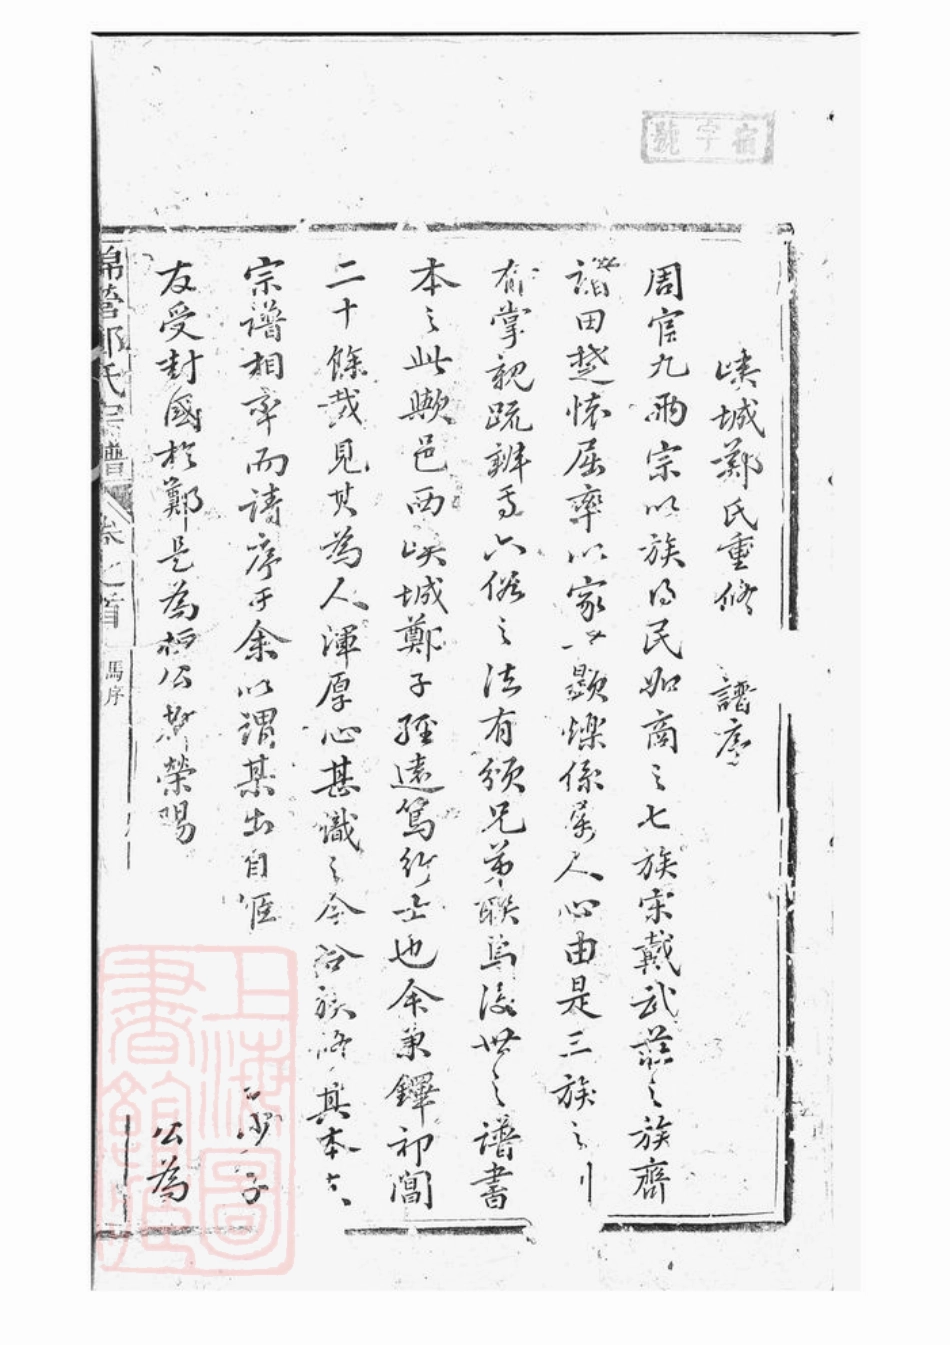 宿字號
峽城鄭氏重修 譜序
周官九兩宗以族得民如商之七族宋戴武莊之族齊
諸田楚懷屈率以家世顯爍係萬人心由是三族之
有掌親疏辨焉六俗之法有頒兄弟聯焉後世之譜書
本之此歟邑西峽城鄭子經遠篤行士也余秉鐸祁閶
二十餘載見其為人渾厚心甚識之今合族修其本
宗譜相率而請序于余以謂某出自
友受封國於鄭是為桓公 榮陽
公為
錦營鄭氏宗譜 卷之首 馮序
上海圖書館藏